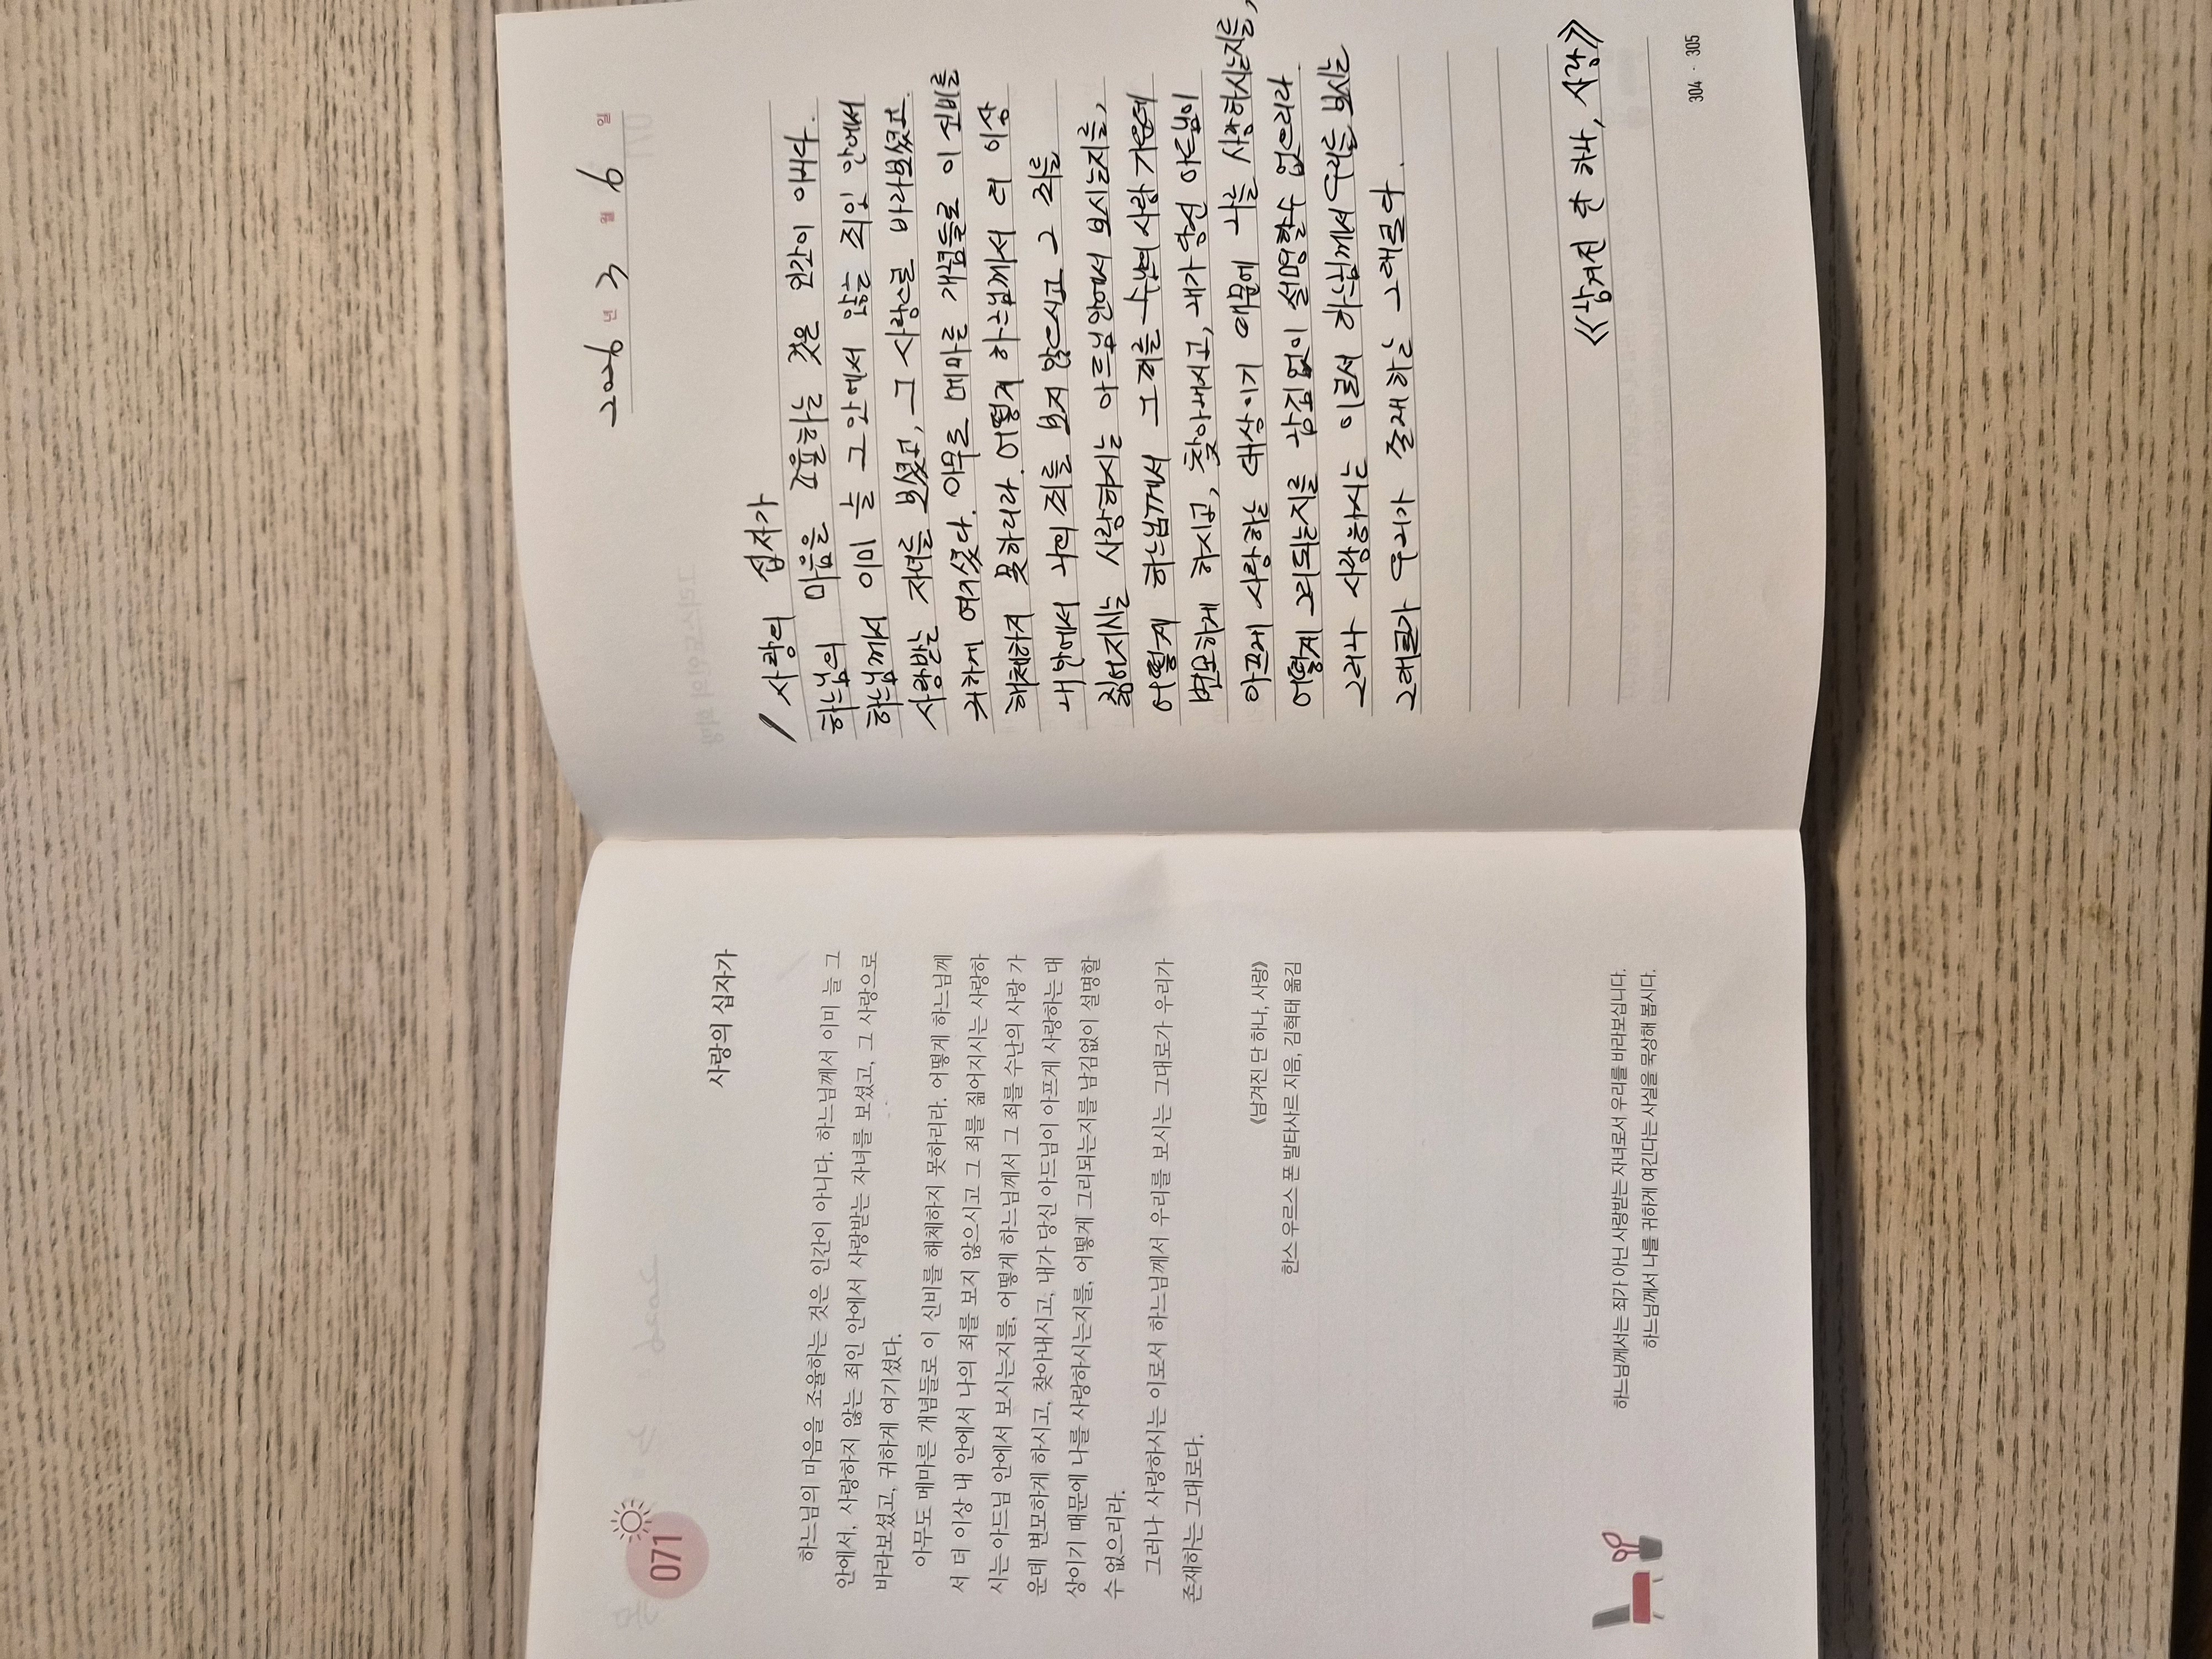 071
사랑의 십자가
하느님의 마음을 조율하는 것은 인간이 아니다. 하느님께서 이미 늘 그
안에서, 사랑하지 않는 죄인 안에서 사랑받는 자녀를 보셨고, 그 사랑으로
바라보셨고, 귀하게 여기셨다.
아무도 메마른 개념들로 이 신비를 해체하지 못하리라. 어떻게 하느님께
서 더 이상 내 안에서 나의 죄를 보지 않으시고 그 죄를 짊어지시는 사랑하
시는 아드님 안에서 보시는지를, 어떻게 하느님께서 그 죄를 수난의 사랑 가
운데 변모하게 하시고, 찾아내시고, 내가 당신 아드님이 아프게 사랑하는 대
상이기 때문에 나를 사랑하시는지를, 어떻게 그리되는지를 남김없이 설명할
수 없으리라.
그러나 사랑하시는 이로서 하느님께서 우리를 보시는 그대로가 우리가
존재하는 그대로다.
《남겨진 단 하나, 사랑》
한스 우르스 폰 발타사르 지음, 김혁태 옮김
하느님께서는 죄가 아닌 사랑받는 자녀로서 우리를 바라보십니다.
하느님께서 나를 귀하게 여긴다는 사실을 묵상해 봅시다.
2026 년 3 월 6 일
/ 사랑의 십자가
하느님의 마음을 조율하는 것은 인간이 아니다.
하느님께서 이미 늘 그 안에서 않는 죄인 안에서
사랑받는 자녀를 보셨고, 그 사랑으로 바라보셨고.
귀하게 여기셨다. 아무도 메마른 개념들로 이 신비를
해체하지 못하리라. 어떻게 하느님께서 더 이상
내 안에서 나의 죄를 보지 않으시고 그 죄를
짊어지시는 사랑하시는 아드님 안에서 보시는지를,
어떻게 하느님께서 그 죄를 수난의 사랑 가운데
변모하게 하시고, 찾아내시고, 내가 당신 아드님이
아프게 사랑하는 대상이기 때문에 나를 사랑하시는지를,
어떻게 그리되는지를 남김없이 설명할수 없으리라.
그러나 사랑하시는 이로서 하느님께서 우리를 보시는
그대로가 우리가 존재하는 그대로다.
《남겨진 단 하나, 사랑》
304 · 305